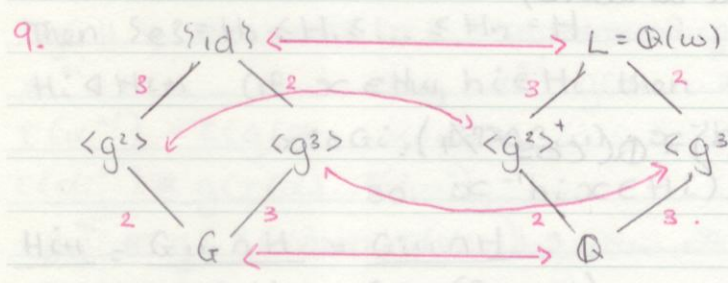 9. {id} L = Q(ω)
3 2 3 2
<g²> <g³> <g²>⁺ <g³
2 3 2 3.
G Q